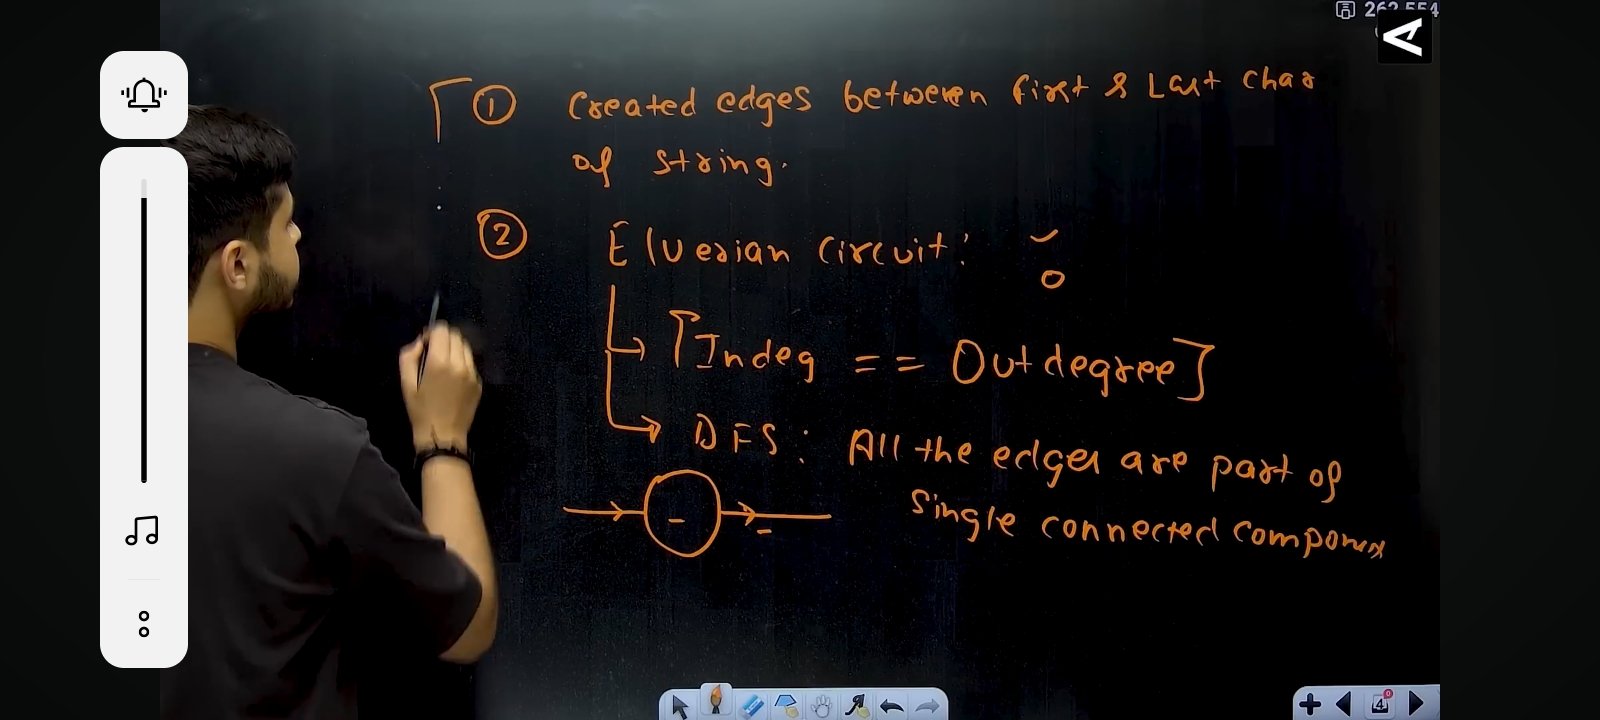 262,554
① Created edges between first & Last char
of string.
② Eluerian circuit:
[Indeg == Outdegree]
DFS: All the edges are part of
single connected
4